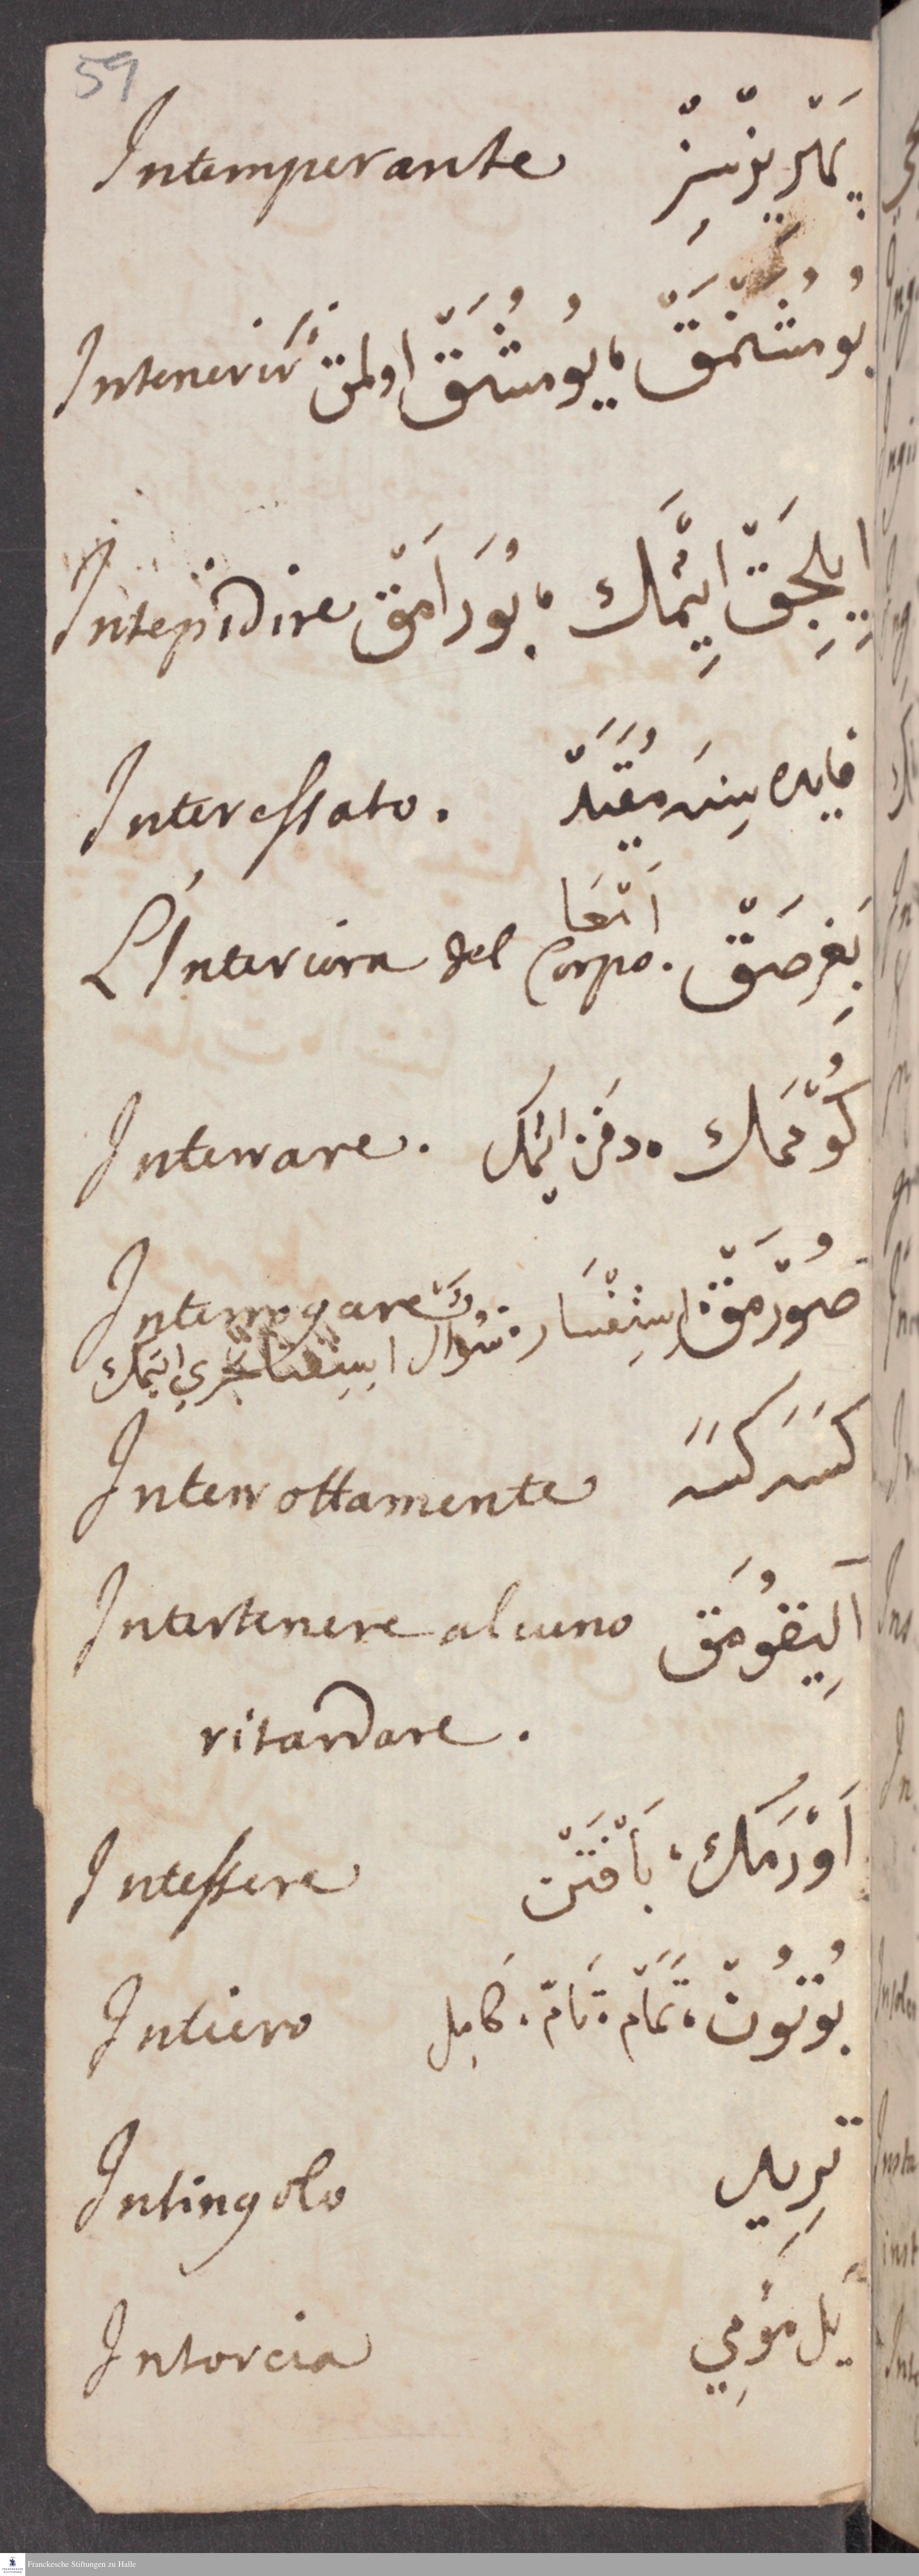 59
Intemperante پَهْرِيزْسِزْ
Intenerire يُومُشَتْمَقْ ، يُومُشَقْ اولمق
Intepidire اِيلِجَقْ اِيتْمَك ؛ بُورَامَقْ
Interessato. فايده سِنَه مُقَيَّدْ
اَمْعَا
L'Interiora del Corpo. بَغِرْصَقْ
Interrare. كُومْمَك ، دفن ايتمك
Interrogare صُورْمَقْ ، اِسْتِفْسَار ، سُوَال
اِيتمك
Interrottamente كَسَه كَسَه
Intertenere alcuno آلِيقُومَق
ritardare.
Intessere اَوْرمَك ، بَافْتَنْ
Intiero بُوتُونْ ، تَمَامْ ، تَامّ ، كَامِل
Intingolo تِرِيد
Intorcia بَل مُومِي
Franckesche Stiftungen zu Halle